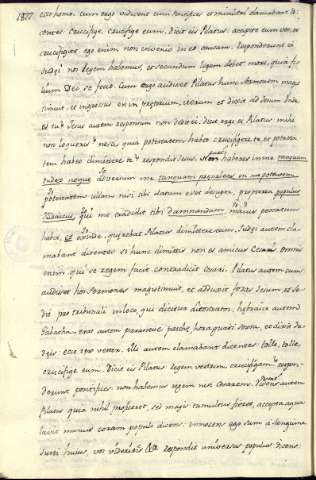 ecce homo. Cum ergo vidissent eum Pontifices et ministri clamabant di-
centes crucifige, crucifige eum, dicit eis Pilatus accipite eum vos, et
crucifigite, ego enim non invenio in eo causam. responderunt ei
Judæi nos legem habemus, et secundum legem debet mori, quia fi-
lium Dei se fecit. Cum ergo audisset Pilatus hunc sermonem magis
timuit. et ingressus est in prætorium iterum et dixit ad Jesum unde
es tu? Jesus autem responsum non dedit ei. dicit ergo ei Pilatus mihi
non loqueris? nescis quia potestatem habeo crucifigere te, et potesta-
tem habeo dimittere te? respondit Jesus. Non haberes in me
potestatem ullam nisi tibi datum esset desuper, propterea populus
Judaicus qui me tradidit tibi ad damnandum maius peccatum
habet. et exinde quærebat Pilatus dimittere eum. Judæi autem cla-
mabant dicentes si hunc dimittis non es amicus Cesaris omnis
enim qui se regem facit contradicit Cesari. Pilatus autem cum
audisset hos sermones magis timuit, et adduxit foras Jesum et se-
dit pro tribunali in loco, qui dicitur Litostratos, hebraice autem
Gabatha. erat autem parasceve paschæ, hora quasi sexta, et dixit Ju-
dæis ecce rex vester. illi autem clamabant dicentes tolle, tolle,
crucifige eum. dicit eis Pilatus regem vestrum crucifigam? respon-
derunt pontifices non habemus regem nisi Cesarem. videns autem
Pilatus quia nihil proficeret, sed magis tumultus fieret, accepta aqua
lavit manus coram populo dicens. innocens ego sum a sanguine
justi huius, vos videritis. et respondit universus populus dicens.